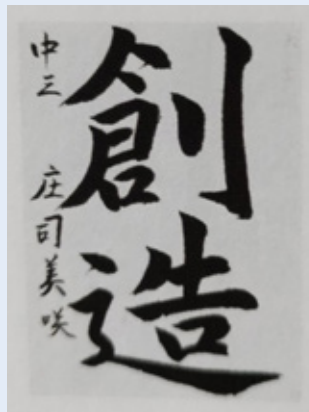 創造
中三 庄司美咲